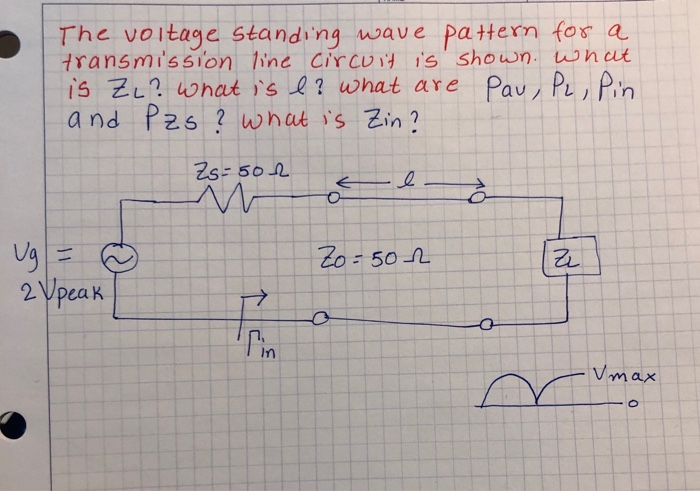 The voltage standing wave pattern for a
transmission line circuit is shown. What
is ZL? What is l? what are Pav, PL, Pin
and PZs? What is Zin?
Zs=50Ω
l
Vg =
2Vpeak
Zo=50Ω
ZL
Γin
Vmax
0